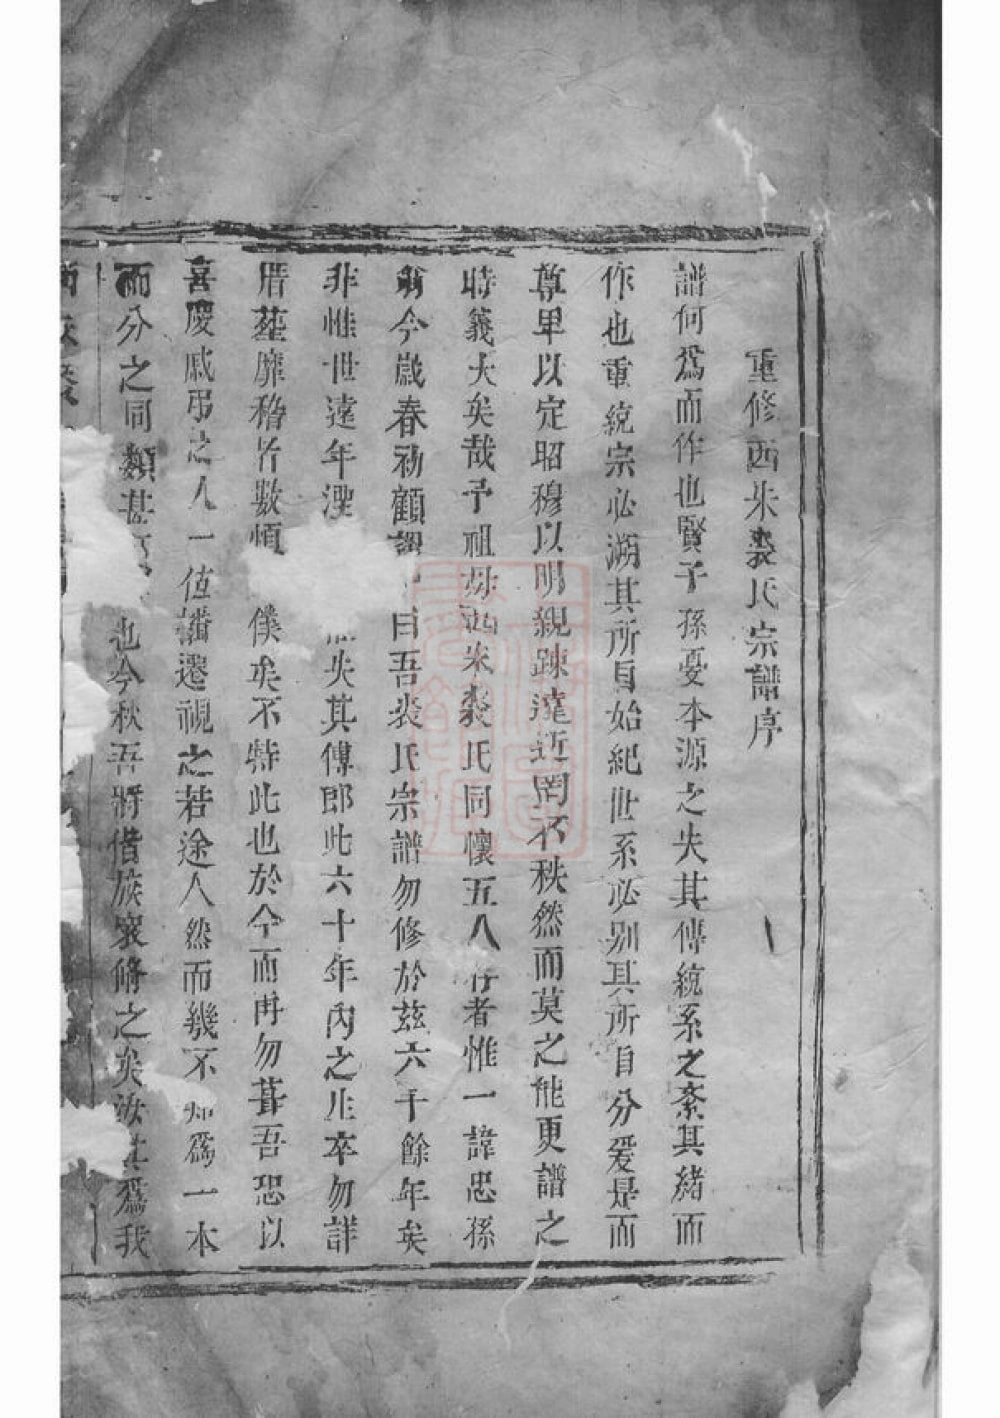 重修西朱裘氏宗譜序
譜何爲而作也賢子孫憂本源之失其傳統系之紊其緒而
作也重統宗必溯其所自始紀世系必别其所自分爰是而
尊卑以定昭穆以明親踈遠近罔不秩然而莫之能更譜之
時義大矣哉予祖母西朱裘氏同懷五人存者惟一諱忠孫
翁今歲春初顧謂 曰吾裘氏宗譜勿修於兹六十餘年矣
非惟世遠年湮 失其傳即此六十年内之生卒勿詳
厝塟靡稽皆數 僕矣不特此也於今而再勿葺吾恐以
喜慶戚弔之人一值播遷視之若途人然而幾不知爲一本
而分之同類甚 也今秋吾將偕族衆修之矣汝其爲我